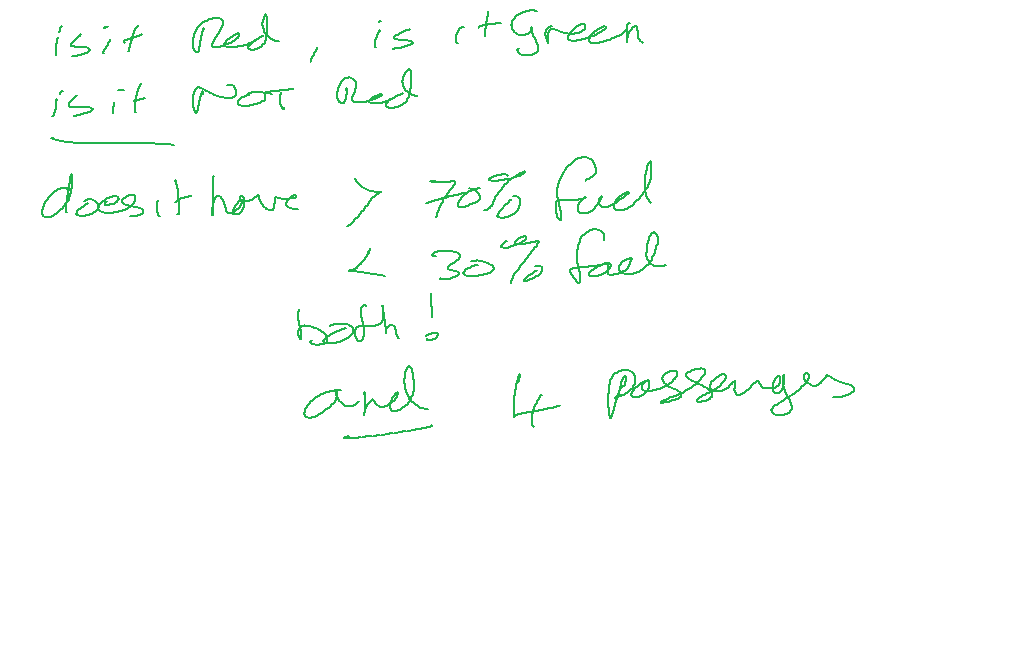 is it Red, is it Green
is it NOT Red
does it have > 70% fuel
< 30% fuel
both!
and 4 passengers